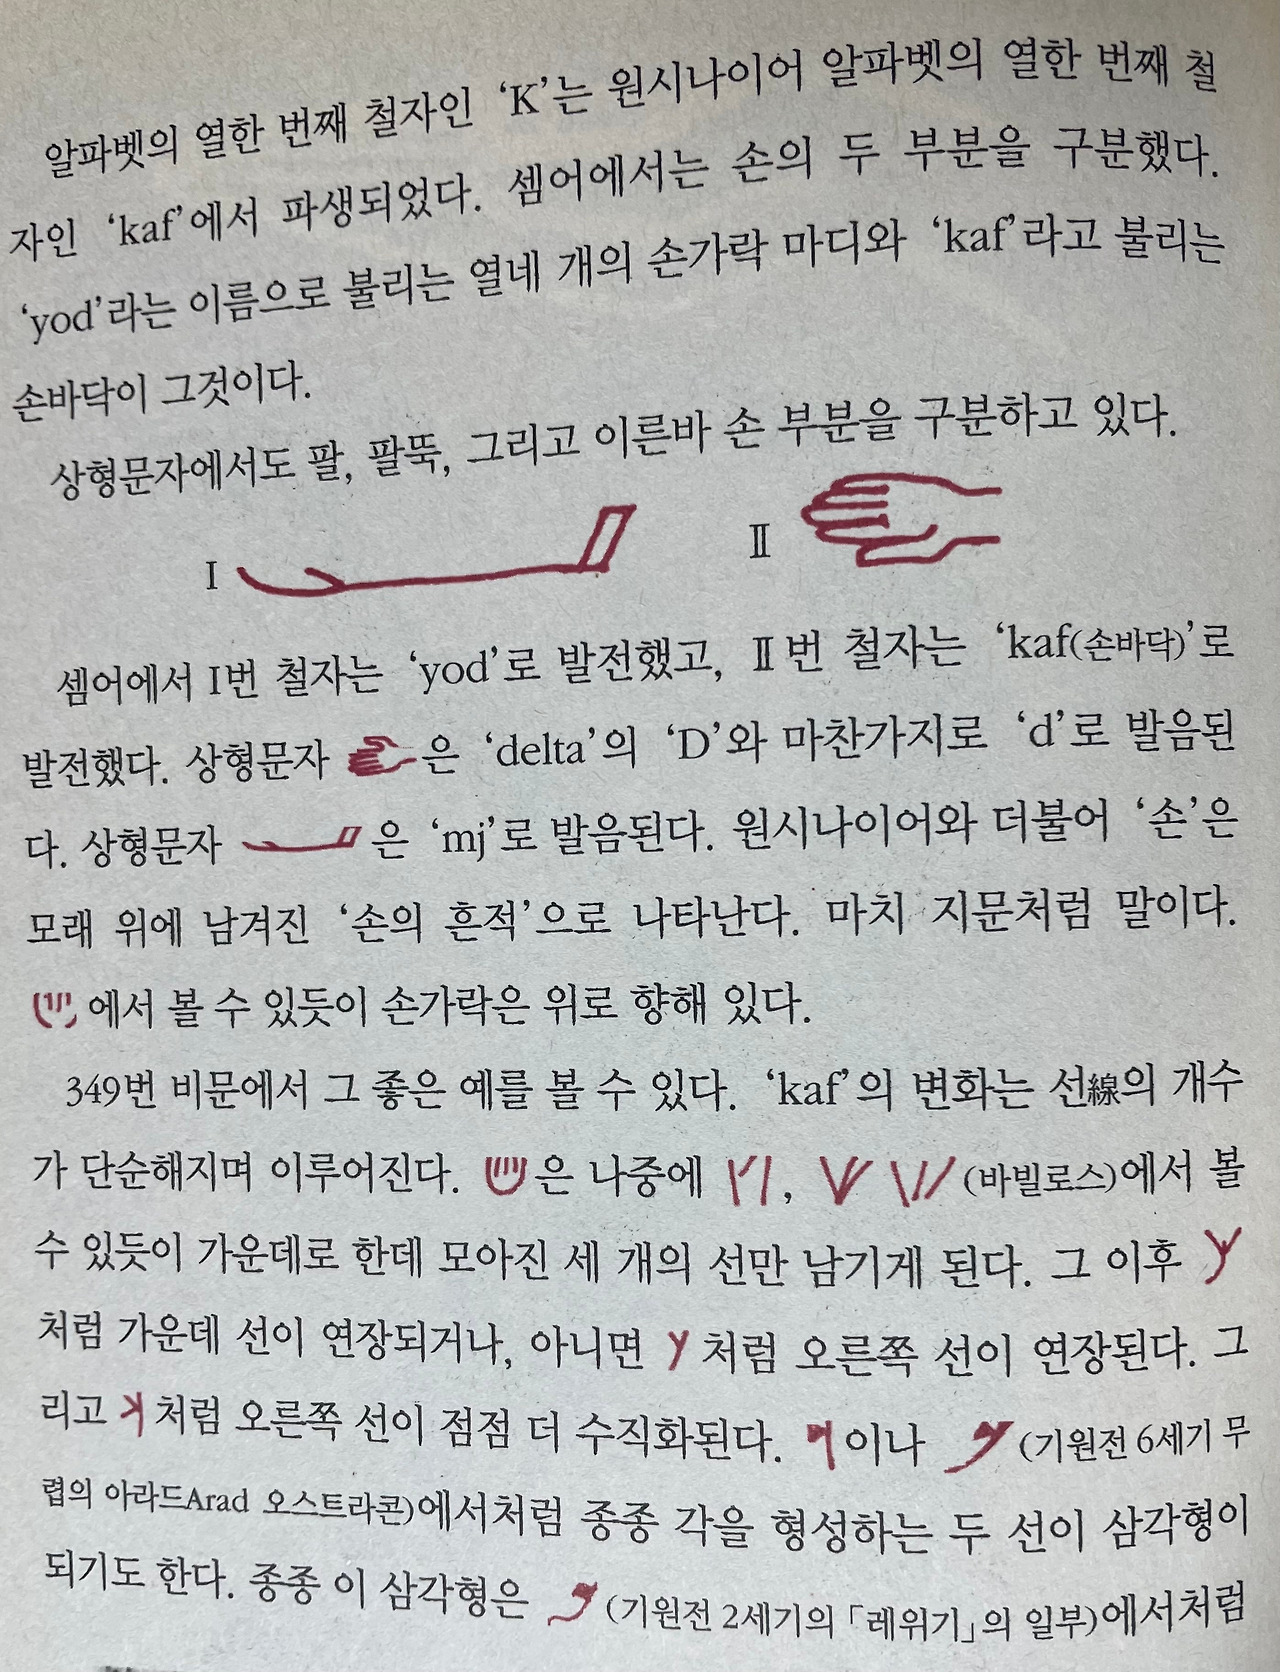 알파벳의 열한 번째 철자인 ‘K’는 원시나이어 알파벳의 열한 번째 철
자인 ‘kaf’에서 파생되었다. 셈어에서는 손의 두 부분을 구분했다.
‘yod’라는 이름으로 불리는 열네 개의 손가락 마디와 ‘kaf’라고 불리는
손바닥이 그것이다.
상형문자에서도 팔, 팔뚝, 그리고 이른바 손 부분을 구분하고 있다.
Ⅰ Ⅱ
셈어에서 Ⅰ번 철자는 ‘yod’로 발전했고, Ⅱ번 철자는 ‘kaf(손바닥)’로
발전했다. 상형문자 은 ‘delta’의 ‘D’와 마찬가지로 ‘d’로 발음된
다. 상형문자 은 ‘mj’로 발음된다. 원시나이어와 더불어 ‘손’은
모래 위에 남겨진 ‘손의 흔적’으로 나타난다. 마치 지문처럼 말이다.
에서 볼 수 있듯이 손가락은 위로 향해 있다.
349번 비문에서 그 좋은 예를 볼 수 있다. ‘kaf’의 변화는 선線의 개수
가 단순해지며 이루어진다. 은 나중에 , (바빌로스)에서 볼
수 있듯이 가운데로 한데 모아진 세 개의 선만 남기게 된다. 그 이후
처럼 가운데 선이 연장되거나, 아니면 처럼 오른쪽 선이 연장된다. 그
리고 처럼 오른쪽 선이 점점 더 수직화된다. 이나 (기원전 6세기 무
렵의 아라드Arad 오스트라콘)에서처럼 종종 각을 형성하는 두 선이 삼각형이
되기도 한다. 종종 이 삼각형은 (기원전 2세기의 「레위기」의 일부)에서처럼